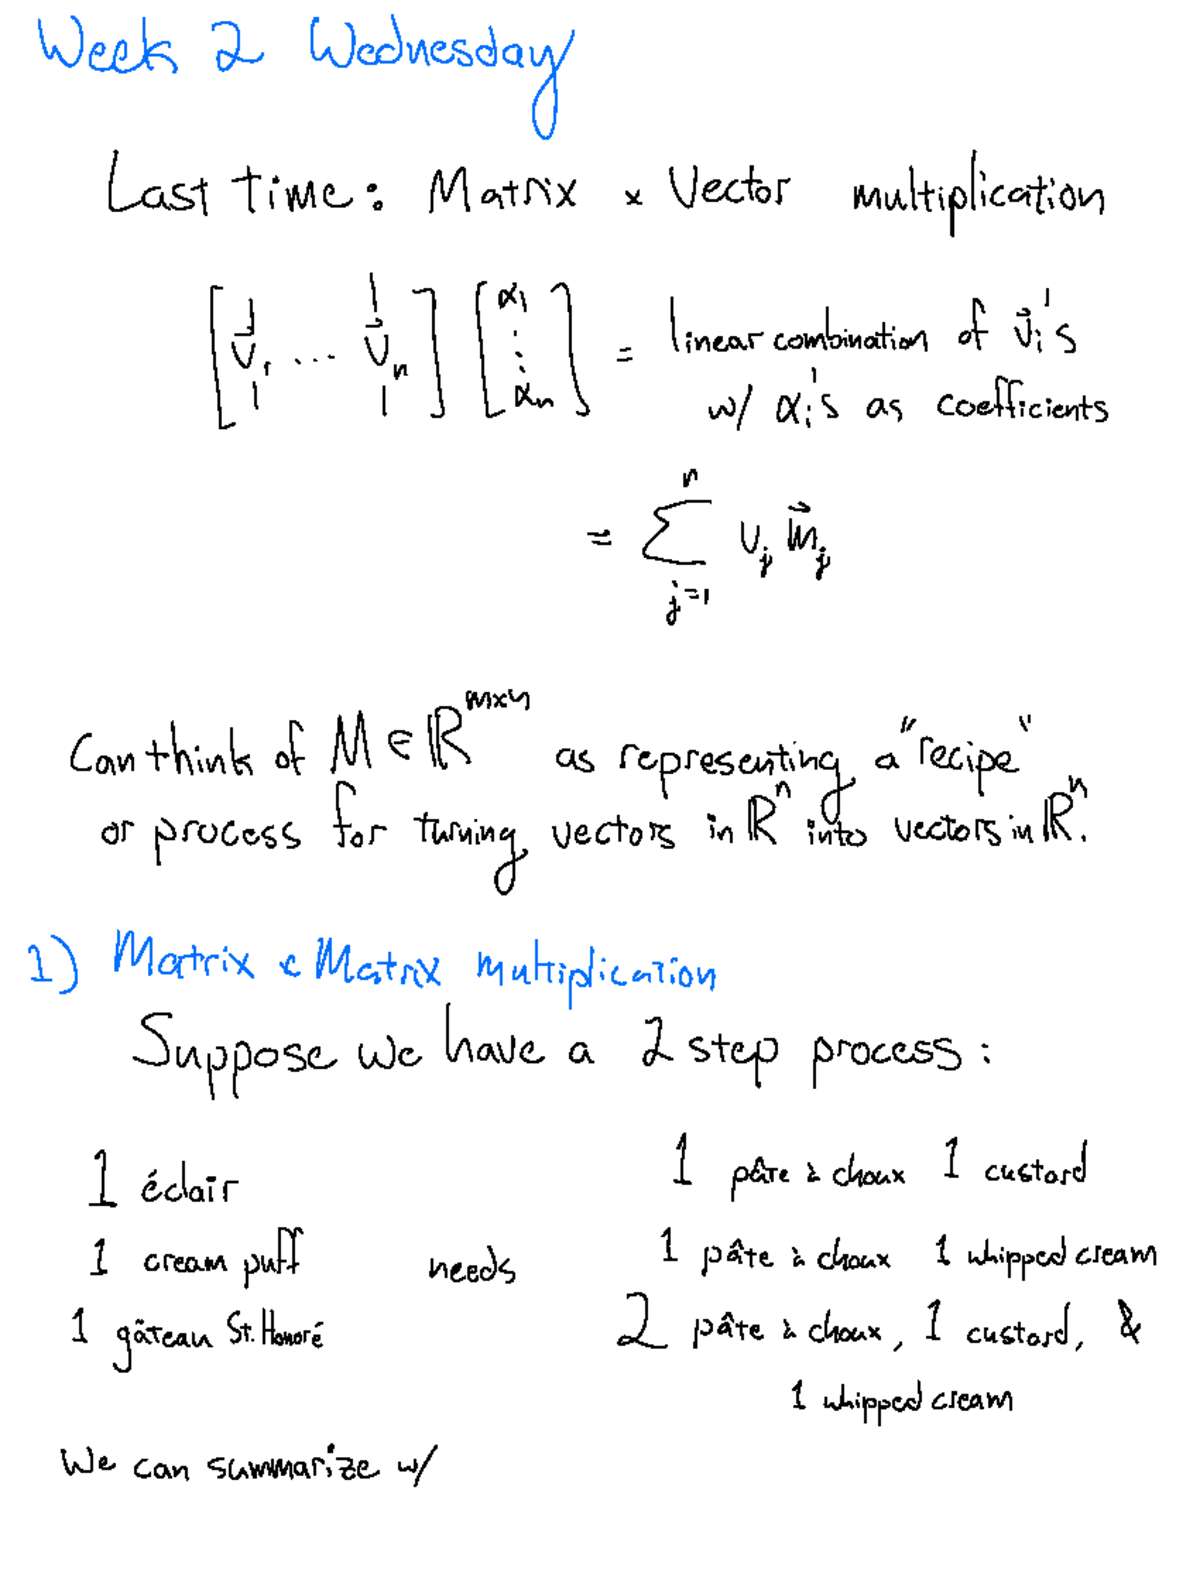 Week 2 Wednesday
Last time: Matrix × Vector multiplication
[v⃗₁ ... v⃗ₙ] [α₁ ⋮ αₙ] = linear combination of v⃗ᵢ's
w/ αᵢ's as coefficients
= ∑ⁿⱼ₌₁ vⱼ m⃗ⱼ
Can think of M ∈ ℝᵐˣⁿ as representing a "recipe"
or process for turning vectors in ℝⁿ into vectors in ℝⁿ.
1) Matrix × Matrix multiplication
Suppose we have a 2 step process:
1 éclair 1 pâte à choux 1 custard
1 cream puff needs 1 pâte à choux 1 whipped cream
1 gâteau St. Honoré 2 pâte à choux, 1 custard, &
1 whipped cream
We can summarize w/